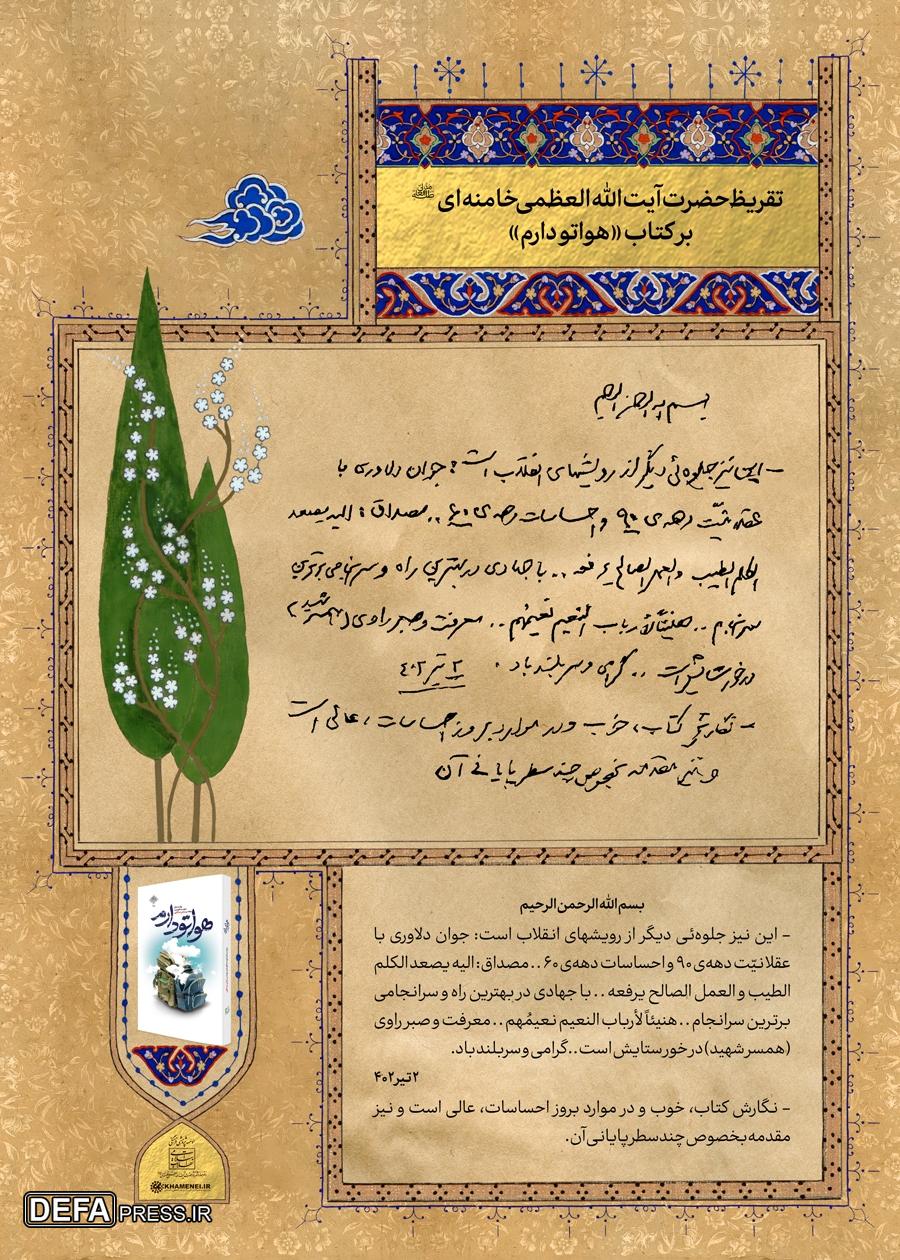 تقریظ حضرت آیت الله العظمی خامنه ای
بر کتاب «هواتو دارم»
بسم الله الرحمن الرحیم
– این نیز جلوه‌ئی دیگر از رویشهای انقلاب است: جوان دلاوری با
عقلانیّت دهه‌ی ۹۰ و احساسات دهه‌ی ۶۰ .. مصداق: الیه یصعد
الکلم الطیب و العمل الصالح یرفعه .. با جهادی در بهترین راه و سرانجامی برترین
سرانجام .. هنیئاً لأرباب النعیم نعیمُهم .. معرفت و صبر راوی (همسر شهید)
درخور ستایش است .. گرامی و سربلند باد.
۲ تیر ۴۰۲
– نگارش کتاب، خوب و در موارد بروز احساسات، عالی است
و نیز مقدمه بخصوص چند سطر پایانی آن
بسم الله الرحمن الرحیم
– این نیز جلوه‌ئی دیگر از رویشهای انقلاب است: جوان دلاوری با
عقلانیّت دهه‌ی ۹۰ و احساسات دهه‌ی ۶۰ .. مصداق: الیه یصعد الکلم
الطیب و العمل الصالح یرفعه .. با جهادی در بهترین راه و سرانجامی
برترین سرانجام .. هنیئاً لأرباب النعیم نعیمُهم .. معرفت و صبر راوی
(همسر شهید) درخور ستایش است .. گرامی و سربلند باد.
۲ تیر ۴۰۲
– نگارش کتاب، خوب و در موارد بروز احساسات، عالی است و نیز
مقدمه بخصوص چند سطر پایانی آن.
هواتو دارم
KHAMENEI.IR
DEFAPRESS.IR